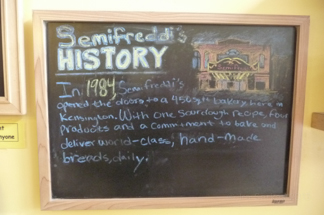 Semifreddi's
HISTORY
In 1984 Semifreddi's
opened the doors to a 450 sq ft bakery here in
Kensington. With one sourdough recipe, four
products and a commitment to bake and
deliver world-class, hand-made
breads, daily.